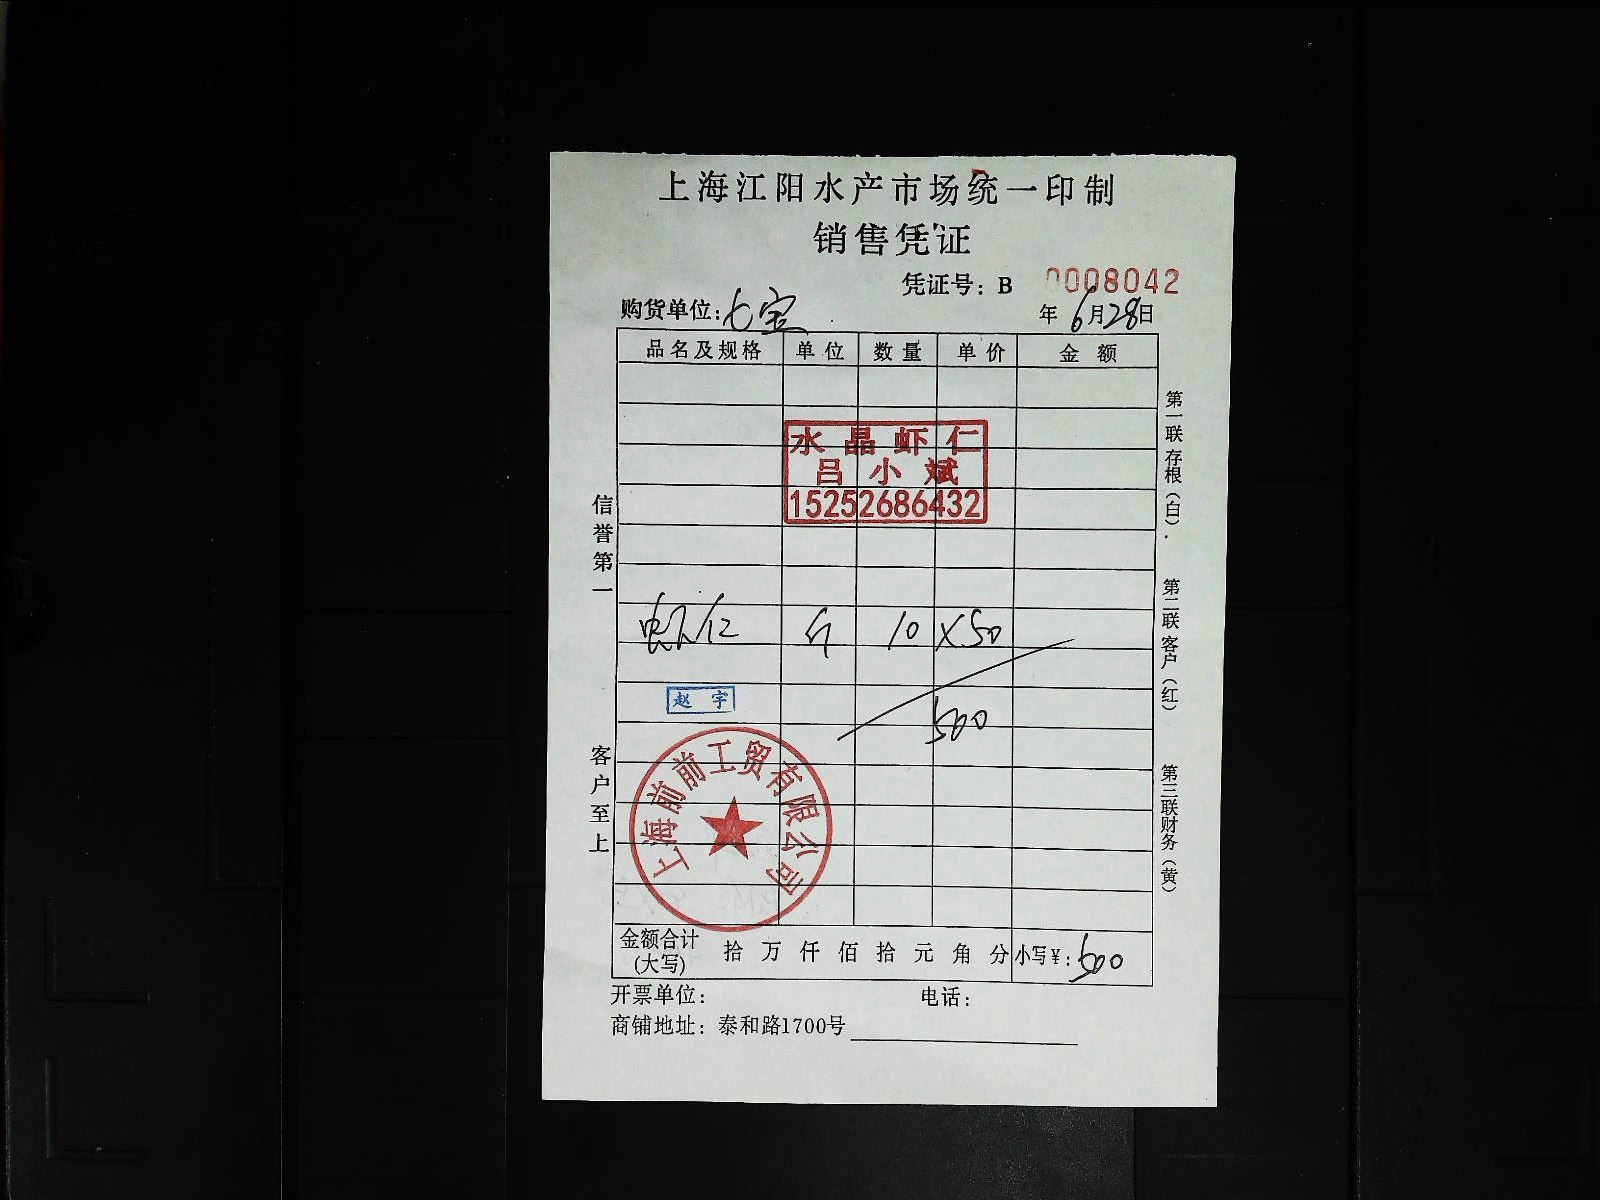 上海江阳水产市场统一印制
销售凭证
凭证号：B 0008042
购货单位：七宝 年 6月28日
品名及规格 单位 数量 单价 金额
水晶虾仁
吕小斌
15252686432
虾仁 斤 10 ×50
赵宇
500
上海前前工贸有限公司
金额合计(大写) 拾 万 仟 佰 拾 元 角 分 小写¥：500
开票单位： 电话：
商铺地址：泰和路1700号
信誉第一
客户至上
第一联存根（白）.
第二联客户（红）
第三联财务（黄）